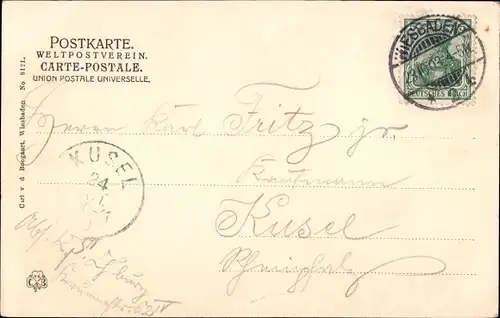 POSTKARTE.
WELTPOSTVEREIN.
CARTE-POSTALE.
UNION POSTALE UNIVERSELLE.
WIESBADEN
DEUTSCHES REICH
Herrn Karl Fritz jr.
Kaufmann
Kusel
Rheinpfalz
KUSEL
24
Carl v. d. Boogaart, Wiesbaden. No 8121.
Abs.